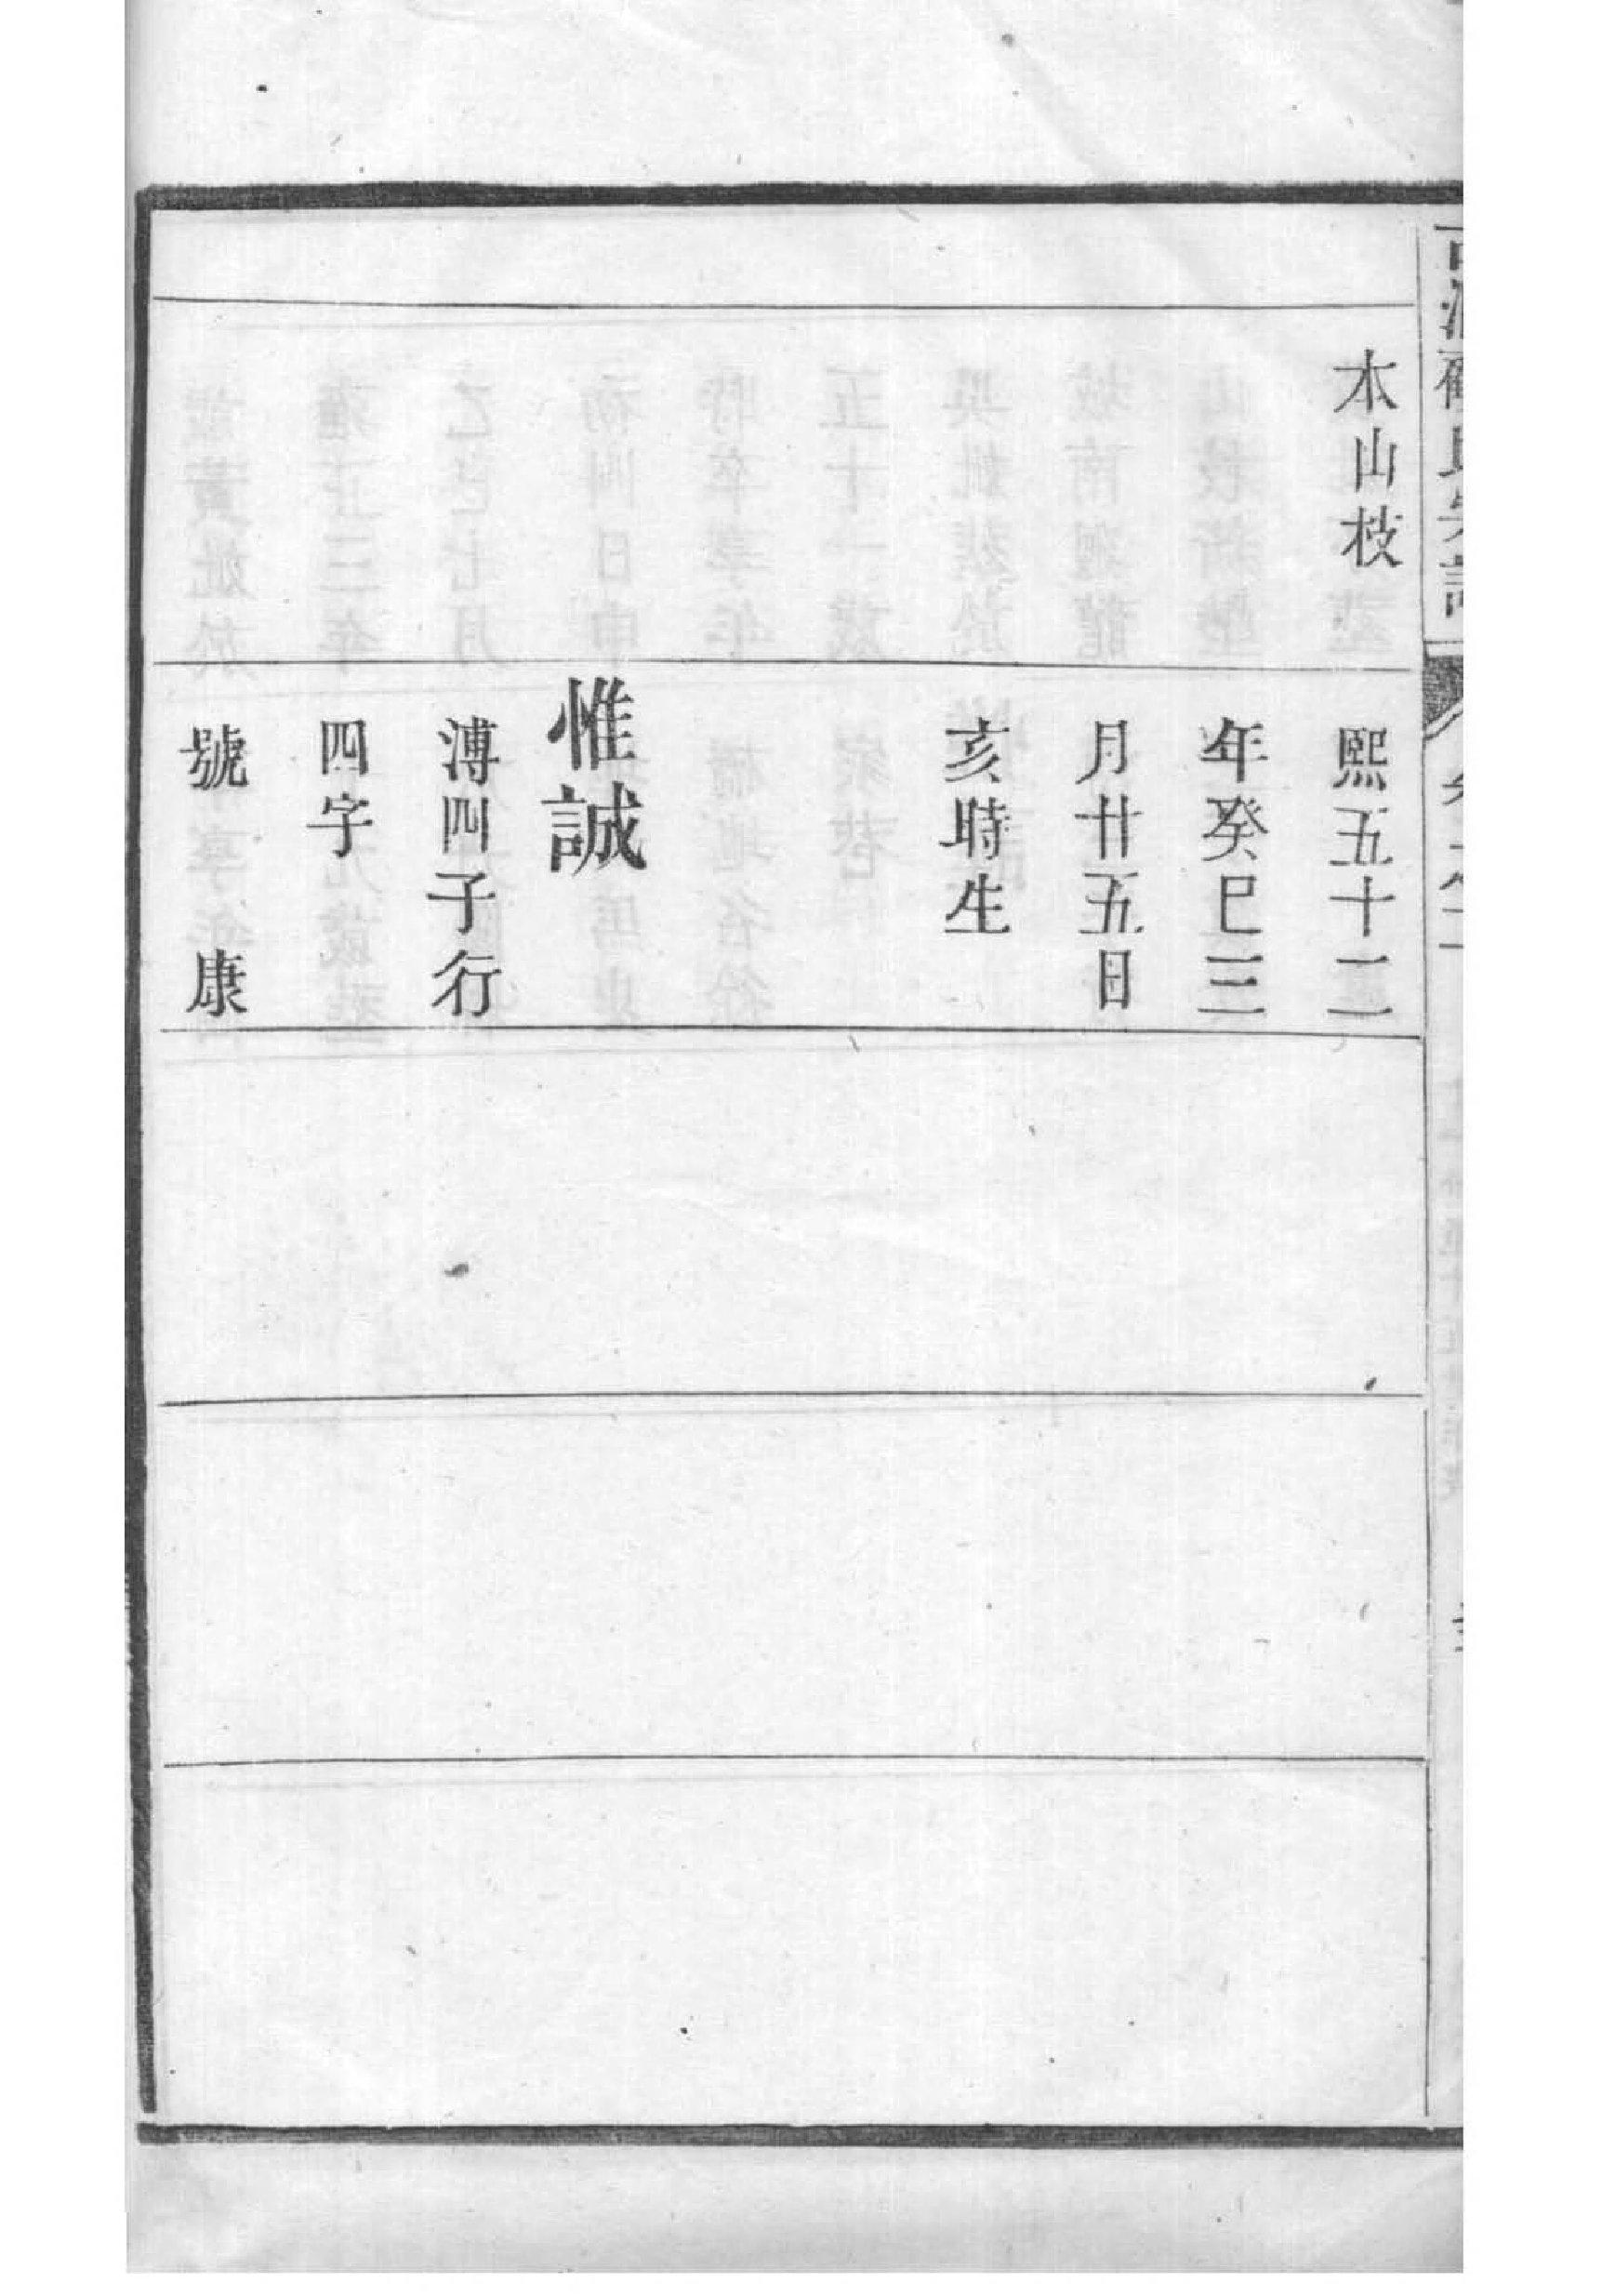 本山枝
熙五十二
年癸巳三
月廿五日
亥時生
惟誠
溥四子行
四字
號　康